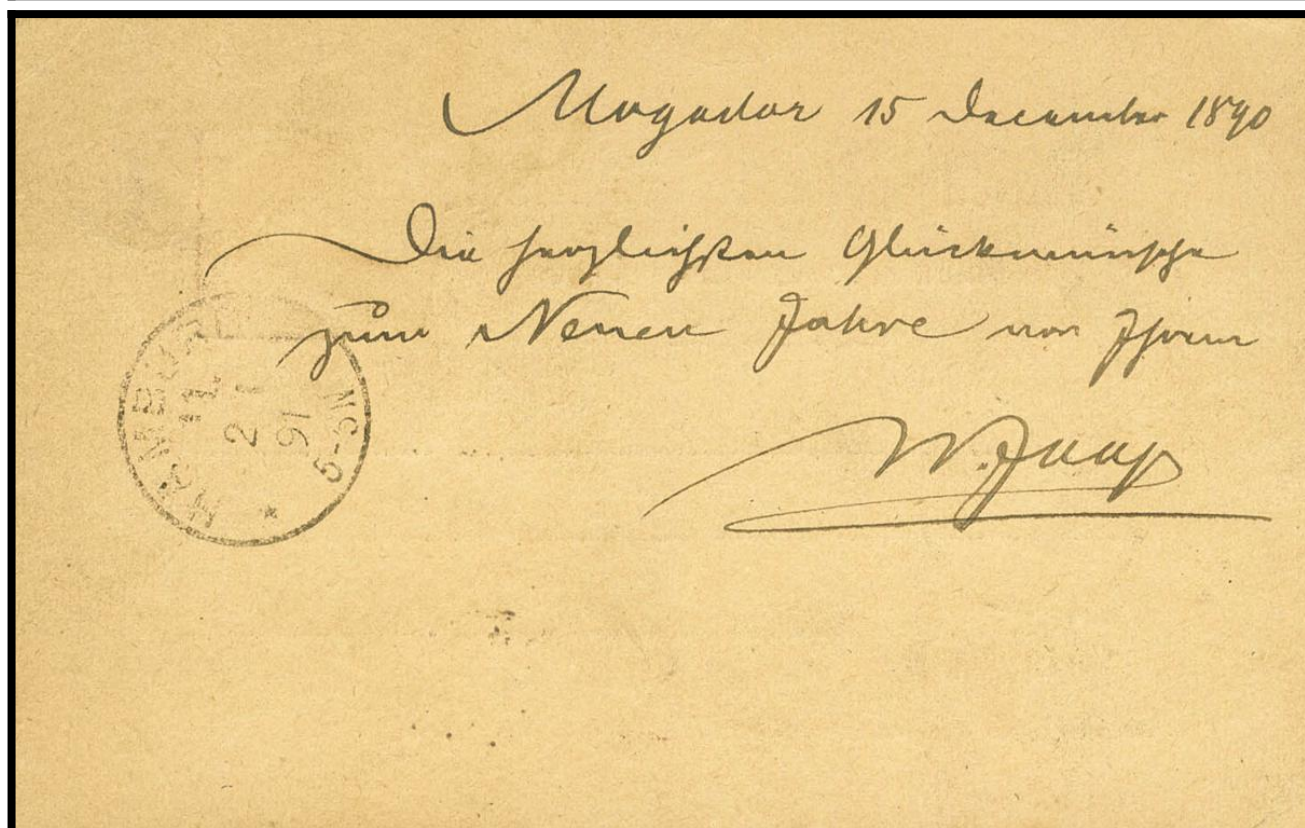 Mogador 15 December 1890
Die herzlichsten Glückwünsche
zum Neuen Jahre von Ihrem
W. Jaap
HAMBURG
11
2 1
91
5-5N